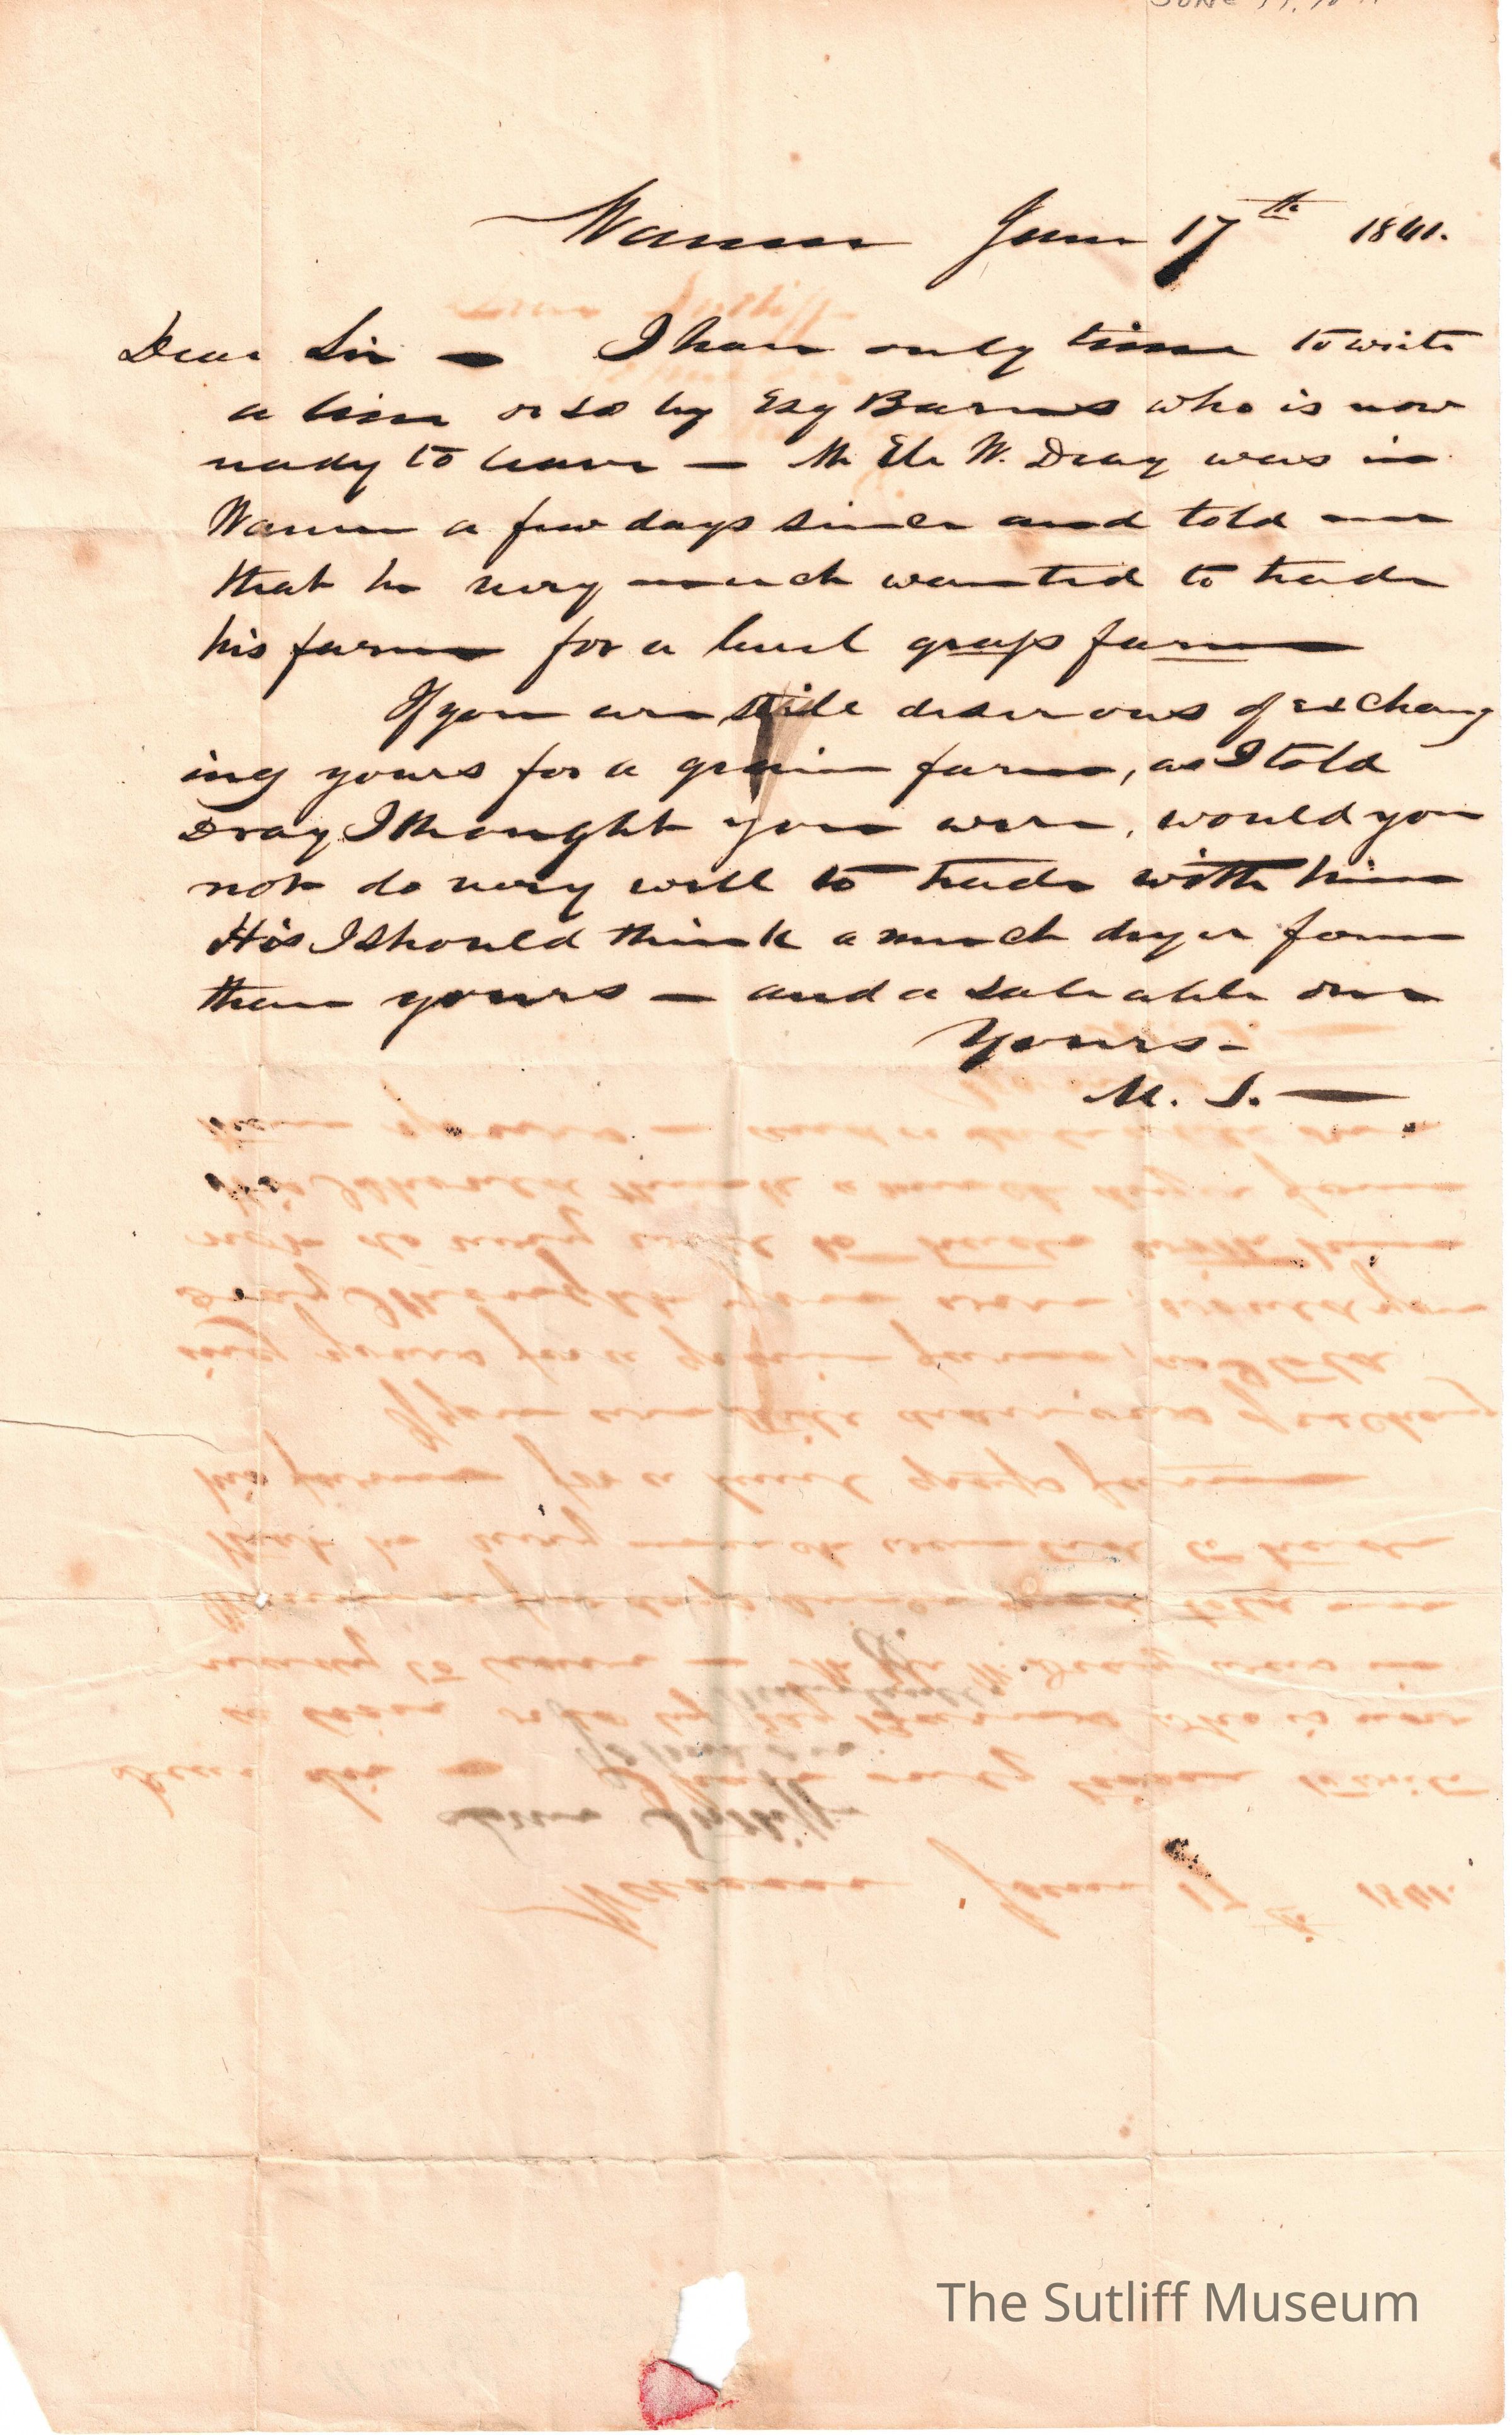 Warren June 17th 1841.
Dear Sir — I have only time to write
a line or so by Esq Barnes who is now
ready to leave — Mr W. Dray was in
Warren a few days since and told me
that he very much wanted to trade
his farm for a level grass farm
If you are still desirous of exchang
ing yours for a grain farm, as I told
Dray I thought you were, would you
not do very well to trade with him
His I should think a much dryer farm
than yours — and a saleable one
Yours —
M. S. —
The Sutliff Museum